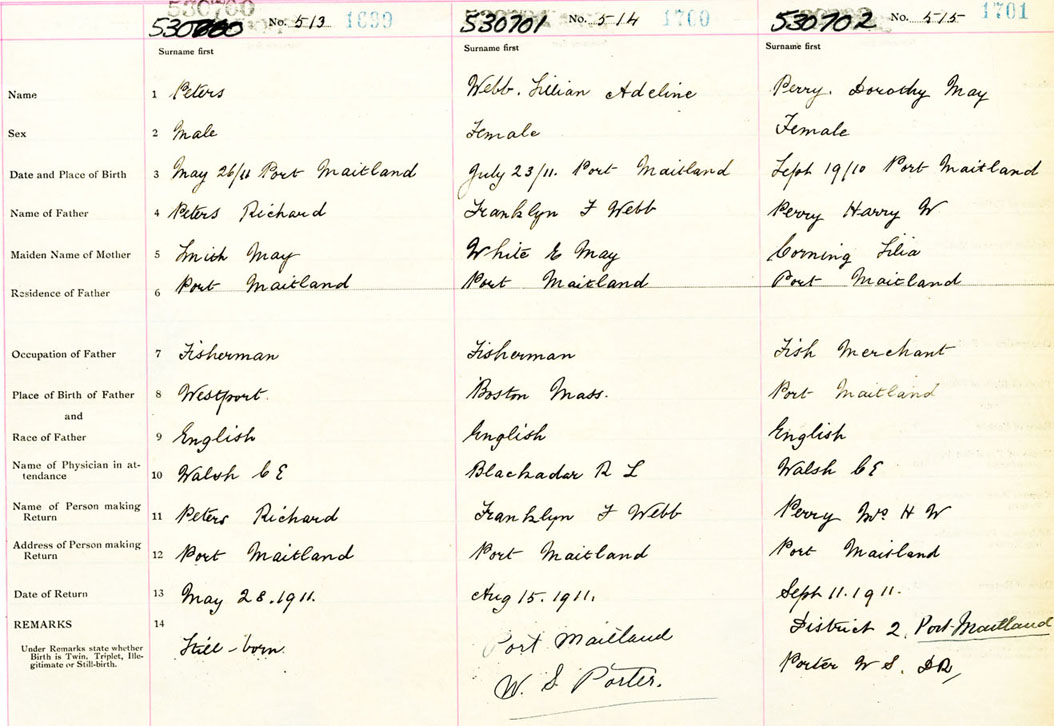 530700 No. 513 1699 530701 No. 514 1700 530702 No. 515 1701
Surname first Surname first Surname first
Name 1 Peters Webb. Lillian Adeline Perry. Dorothy May
Sex 2 Male Female Female
Date and Place of Birth 3 May 26/11 Port Maitland July 23/11. Port Maitland Sept 19/10 Port Maitland
Name of Father 4 Peters Richard Franklyn F Webb Perry Harry W
Maiden Name of Mother 5 Smith May White E May Corning Lilia
Residence of Father 6 Port Maitland Port Maitland Port Maitland
Occupation of Father 7 Fisherman Fisherman Fish Merchant
Place of Birth of Father 8 Westport. Boston Mass. Port Maitland
and
Race of Father 9 English English English
Name of Physician in at-
tendance 10 Walsh C E Blackadar R L Walsh C E
Name of Person making
Return 11 Peters Richard Franklyn F Webb Perry Mrs H W
Address of Person making
Return 12 Port Maitland Port Maitland Port Maitland
Date of Return 13 May 28.1911. Aug 15.1911. Sept 11.1911.
REMARKS 14 Still-born. Port Maitland District 2, Port Maitland
Under Remarks state whether
Birth is Twin, Triplet, Ille-
gitimate or Still-birth.
W. S. Porter. Porter W S. DR,